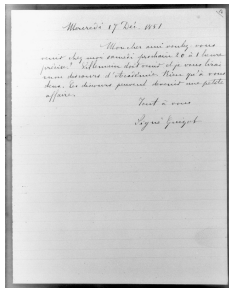 Mercredi 17 Déc. 1851
Mon cher ami voulez-vous
venir chez moi samedi prochain 20 à 1 heure
précise? Villemain doit venir et je vous lirai
mon discours d'Académie. Rien qu'à vous
deux. Les devoirs peuvent devenir une petite
affaire.
Tout à vous
Signé Guizot